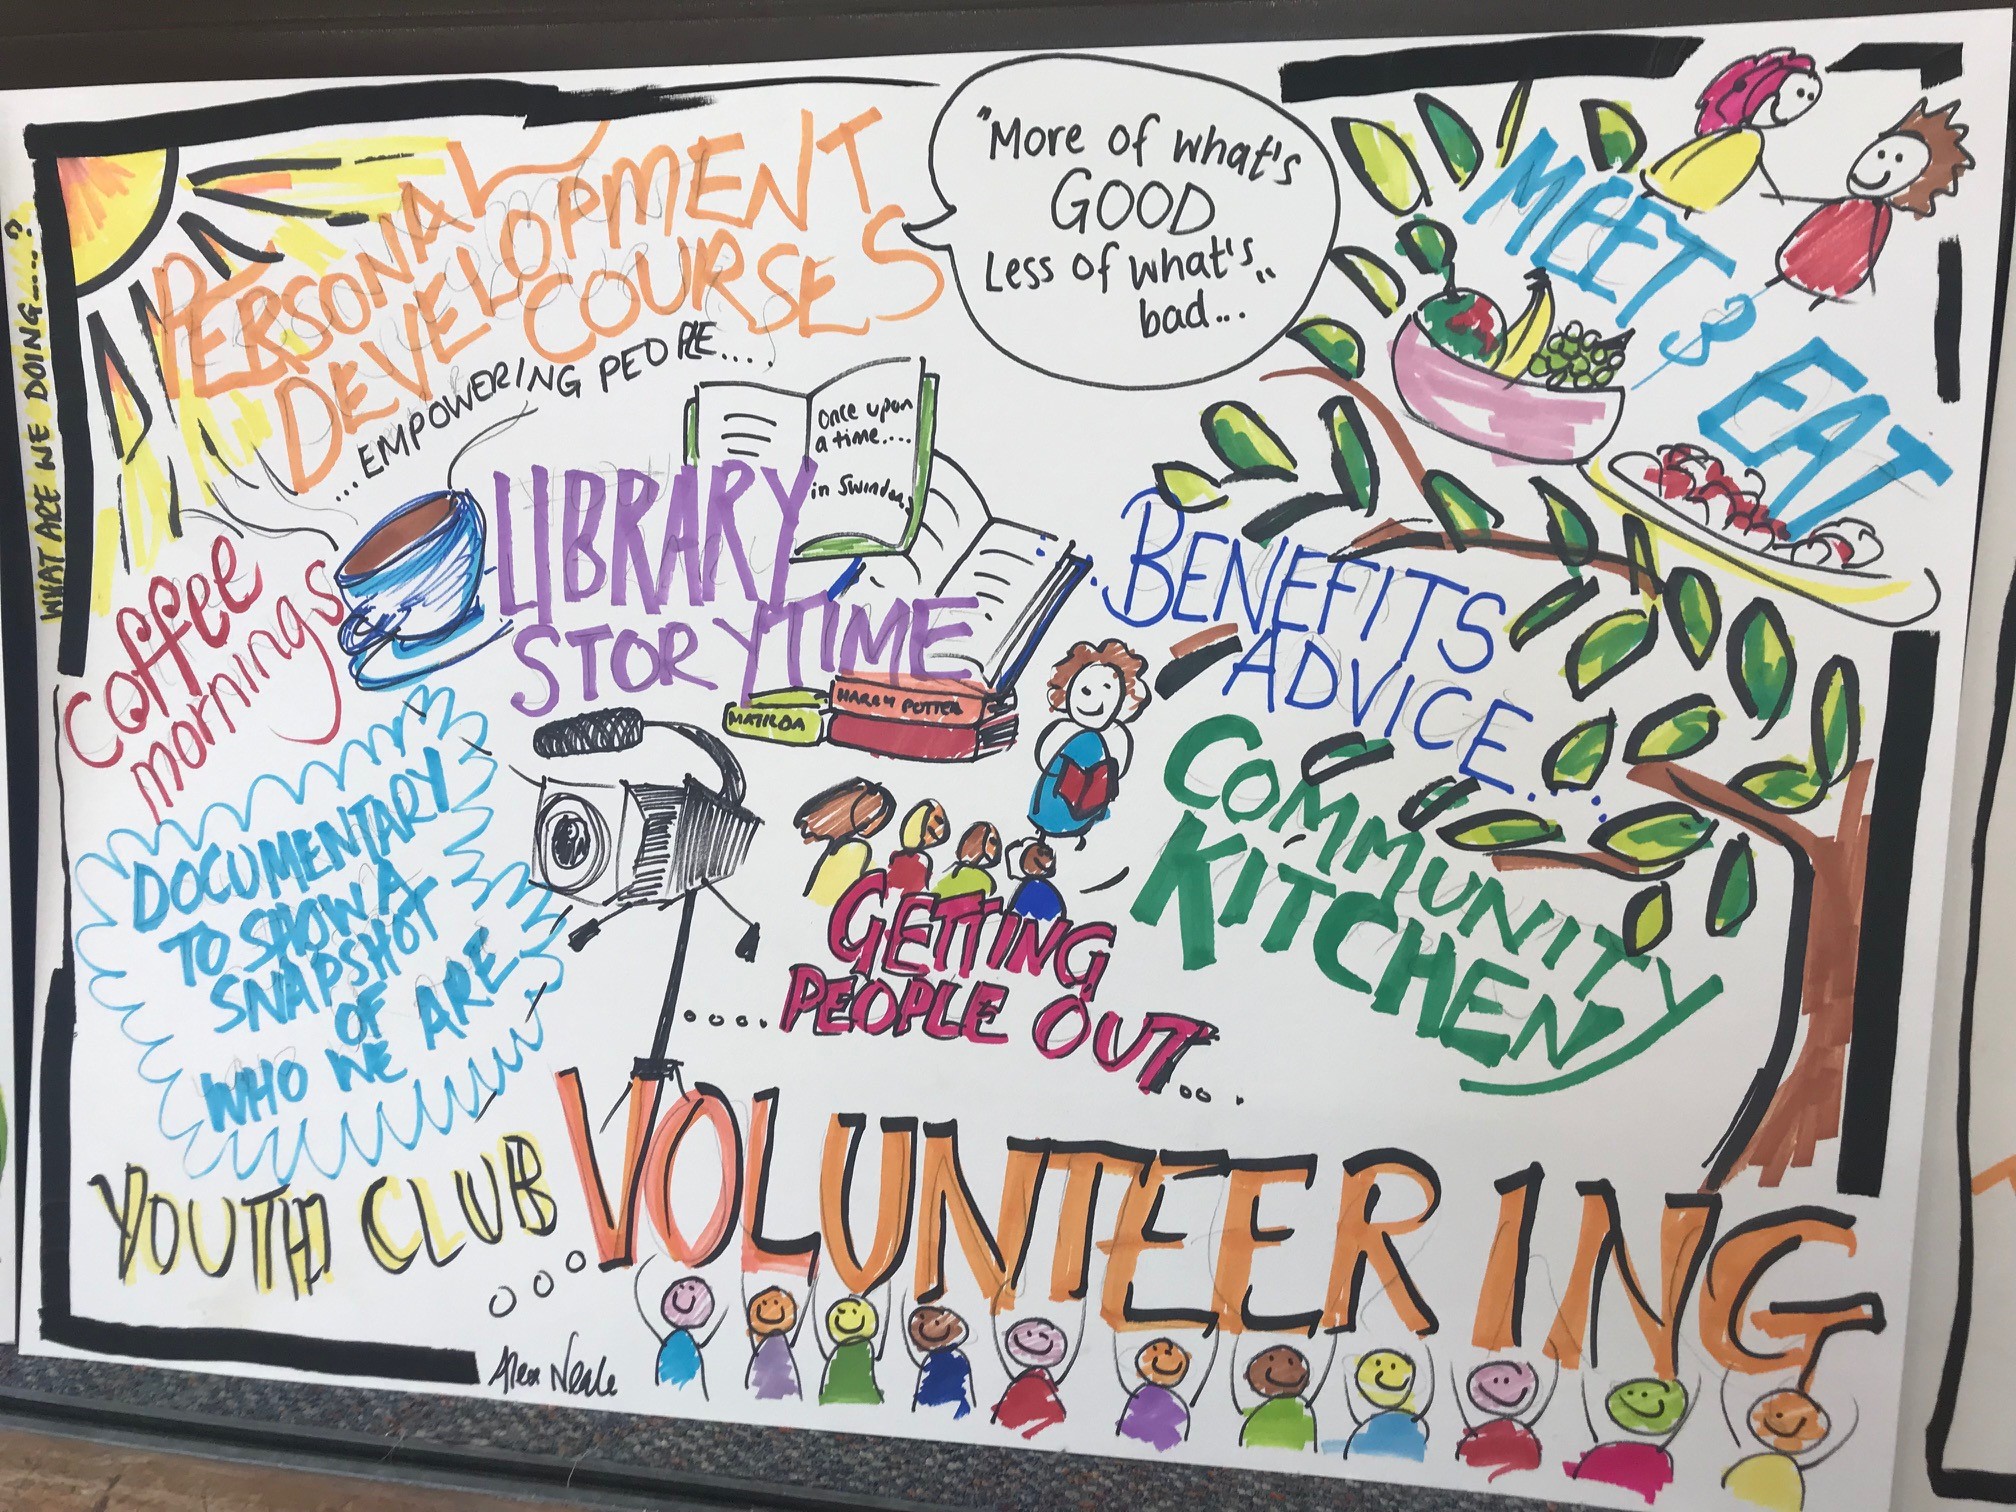 WHAT ARE WE DOING.....?
PERSONAL
DEVELOPMENT
COURSES
...EMPOWERING PEOPLE....
"More of what's
GOOD
Less of what's"
bad...
MEET &
EAT
Once upon
a time....
in Swindon
LIBRARY
STORYTIME
MATILDA
HARRY POTTER
Coffee
mornings
BENEFITS
ADVICE....
COMMUNITY
KITCHEN
DOCUMENTARY
TO SHOW A
SNAPSHOT
OF
WHO WE ARE
GETTING
....PEOPLE OUT...
YOUTH CLUB
VOLUNTEERING
Alex Neale